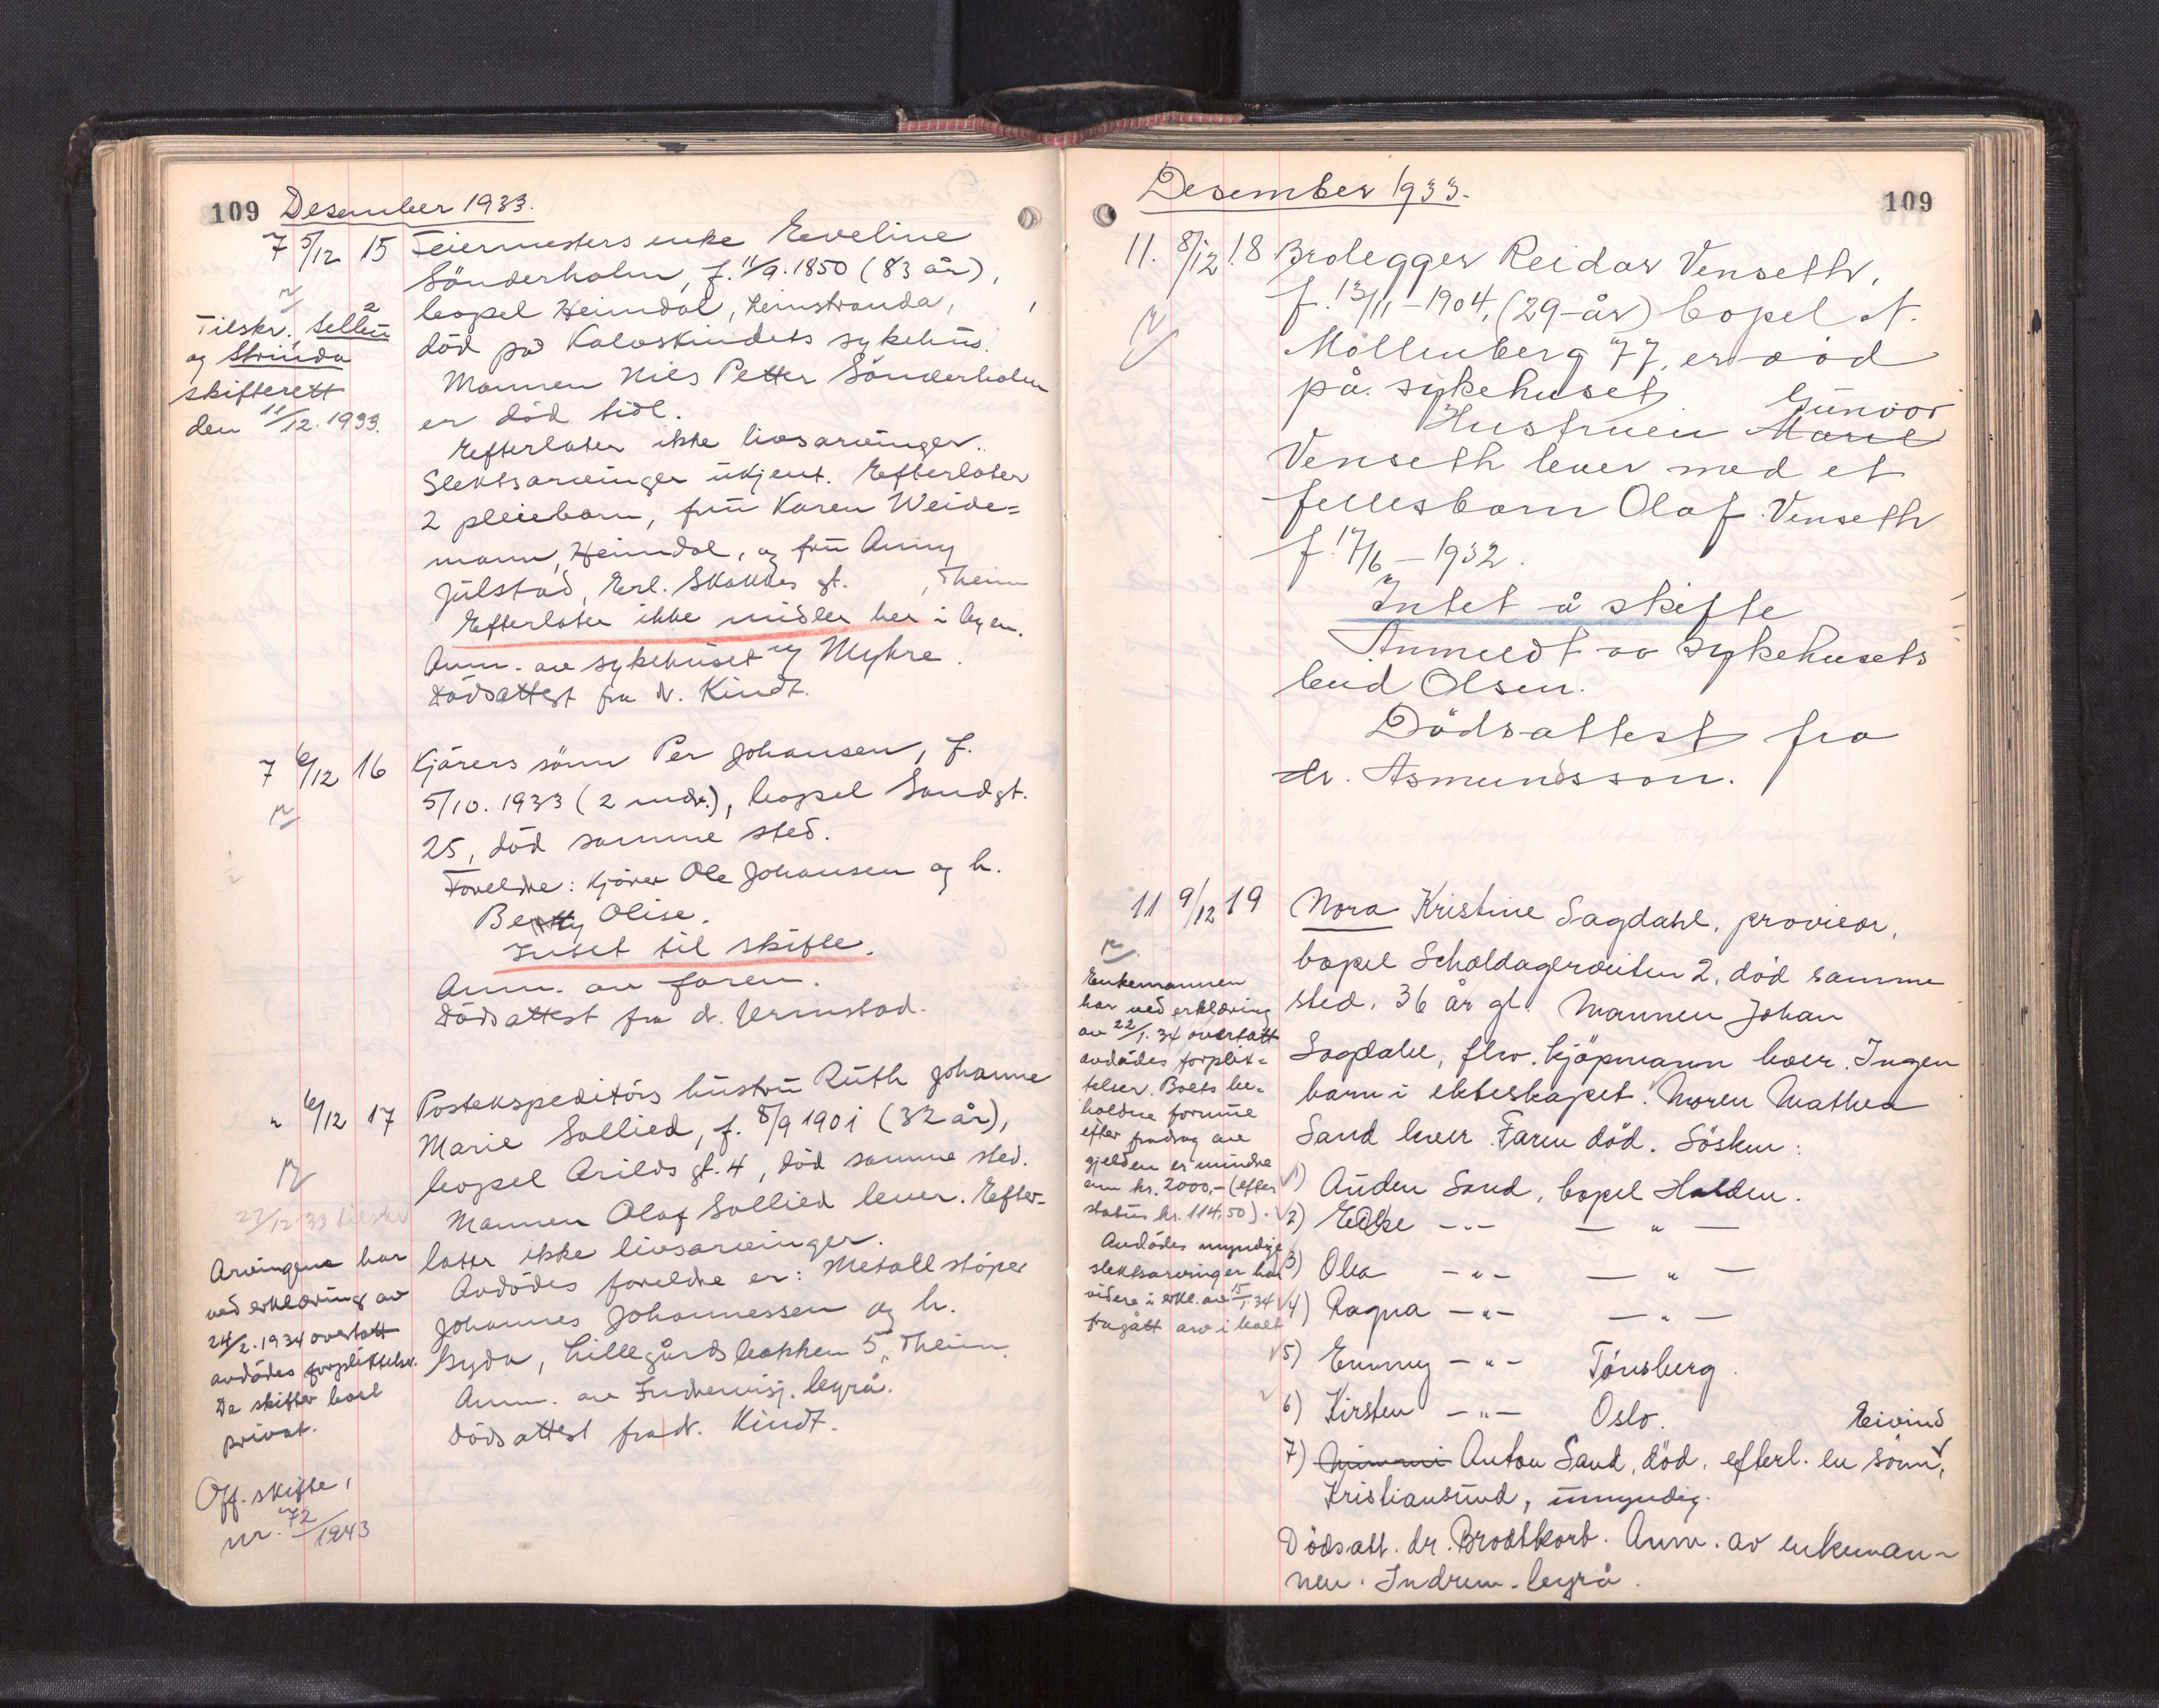 109 Desember 1933.
7 5/12 15 Feiermesters enke Eeveline
Sönderholm, f. 11/9.1850 (83 år),
bopel Heimdal, Leinstranda,
död på Kalvskindets sykehus.
Mannen Nils Petter Sönderholm
er död tidl.
Efterlater ikke livsarvinger.
Slektsarvinger ukjent. Efterlater
2 pleiebarn, fru Karen Weide=
mann, Heimdal, og fru Anny
Julstad, Erl. Skakkes gt. , Theim
Efterlater ikke midler her i byen.
Anm. av sykehuset v/ Myhre.
Dödsattest fra dr. Kindt.
Tilskr.
og Strinda
skifterett
den 11/12.1933.
7 6/12 16 Kjörers sönn Per Johansen, f.
5/10.1933 (2 mdr.), bopel Sandgt.
25, död samme sted.
Foreldre: Kjörer Ole Johansen og h.
Betty Olise.
Intet til skifte.
Anm. av faren.
Dödsattest fra dr. Urmstad.
" 6/12 17 Postekspeditörs hustru Ruth Johanne
Marie Sollied, f. 8/9 1901 (32 år),
bopel Arilds gt. 4, död samme sted.
Mannen Olaf Sollied lever. Efter-
later ikke livsarvinger.
Avdödes foreldre er: Metallstöper
Johannes Johannessen og h.
Gyda, Lillegårdsbakken 5, Theim.
Anm. av Indremisj. byrå.
Dödsattest fra dr. Kindt.
22/12 33 tilskr
Arvingene har
ved erklæring av
24/2.1934 overtatt
avdödes forpliktelser.
De skifter boet
privat.
Off. skifte,
nr. 72/1943
Desember 1933. 109
11. 8/12 18 Brolegger Reidar Venseth,
f. 13/11-1904, (29-år) bopel N.
Möllenberg 77, er död
på sykehuset
Gunvor
Hustruen Marie
Venseth lever med et
fellesbarn Olaf Venseth
f. 17/6-1932.
Intet å skifte
Anmeldt av sykehusets
bud Olsen.
Dödsattest fra
dr. Asmundsson.
11 9/12 19 Nora Kristine Sagdahl, provisor,
bopel Scholdagerveiten 2, död samme
sted. 36 år gl. Mannen Johan
Sagdahl, fhv. kjöpmann lever. Ingen
barn i ekteskapet. Moren Mathea
Sand lever. Faren död. Sösken:
1) Auden Sand, bopel Halden.
2) -"- — " —
3) Olea -"- — " —
4) Ragna -"- — " —
5) Emmy -"- Tönsberg.
6) Kirsten -"- Oslo.
Eivind
7) Anton Sand, död, efterl. en sönn,
Kristiansund, umyndig.
Dödsatt. dr. Brodtkorb. Anm. av enkeman-
nen. Indrem. byrå.
Enkemannen
har ved erklæring
av 22/1.34 overtatt
avdödes forplik=
telser. Boets be-
holdne formue
efter fradrag av
gjelden er mindre
enn kr. 2000,- (efter
status kr. 114,50).
Avdödes myndige
slektsarvinger har
videre i erkl. av 15/1.34
fragått arv i boet